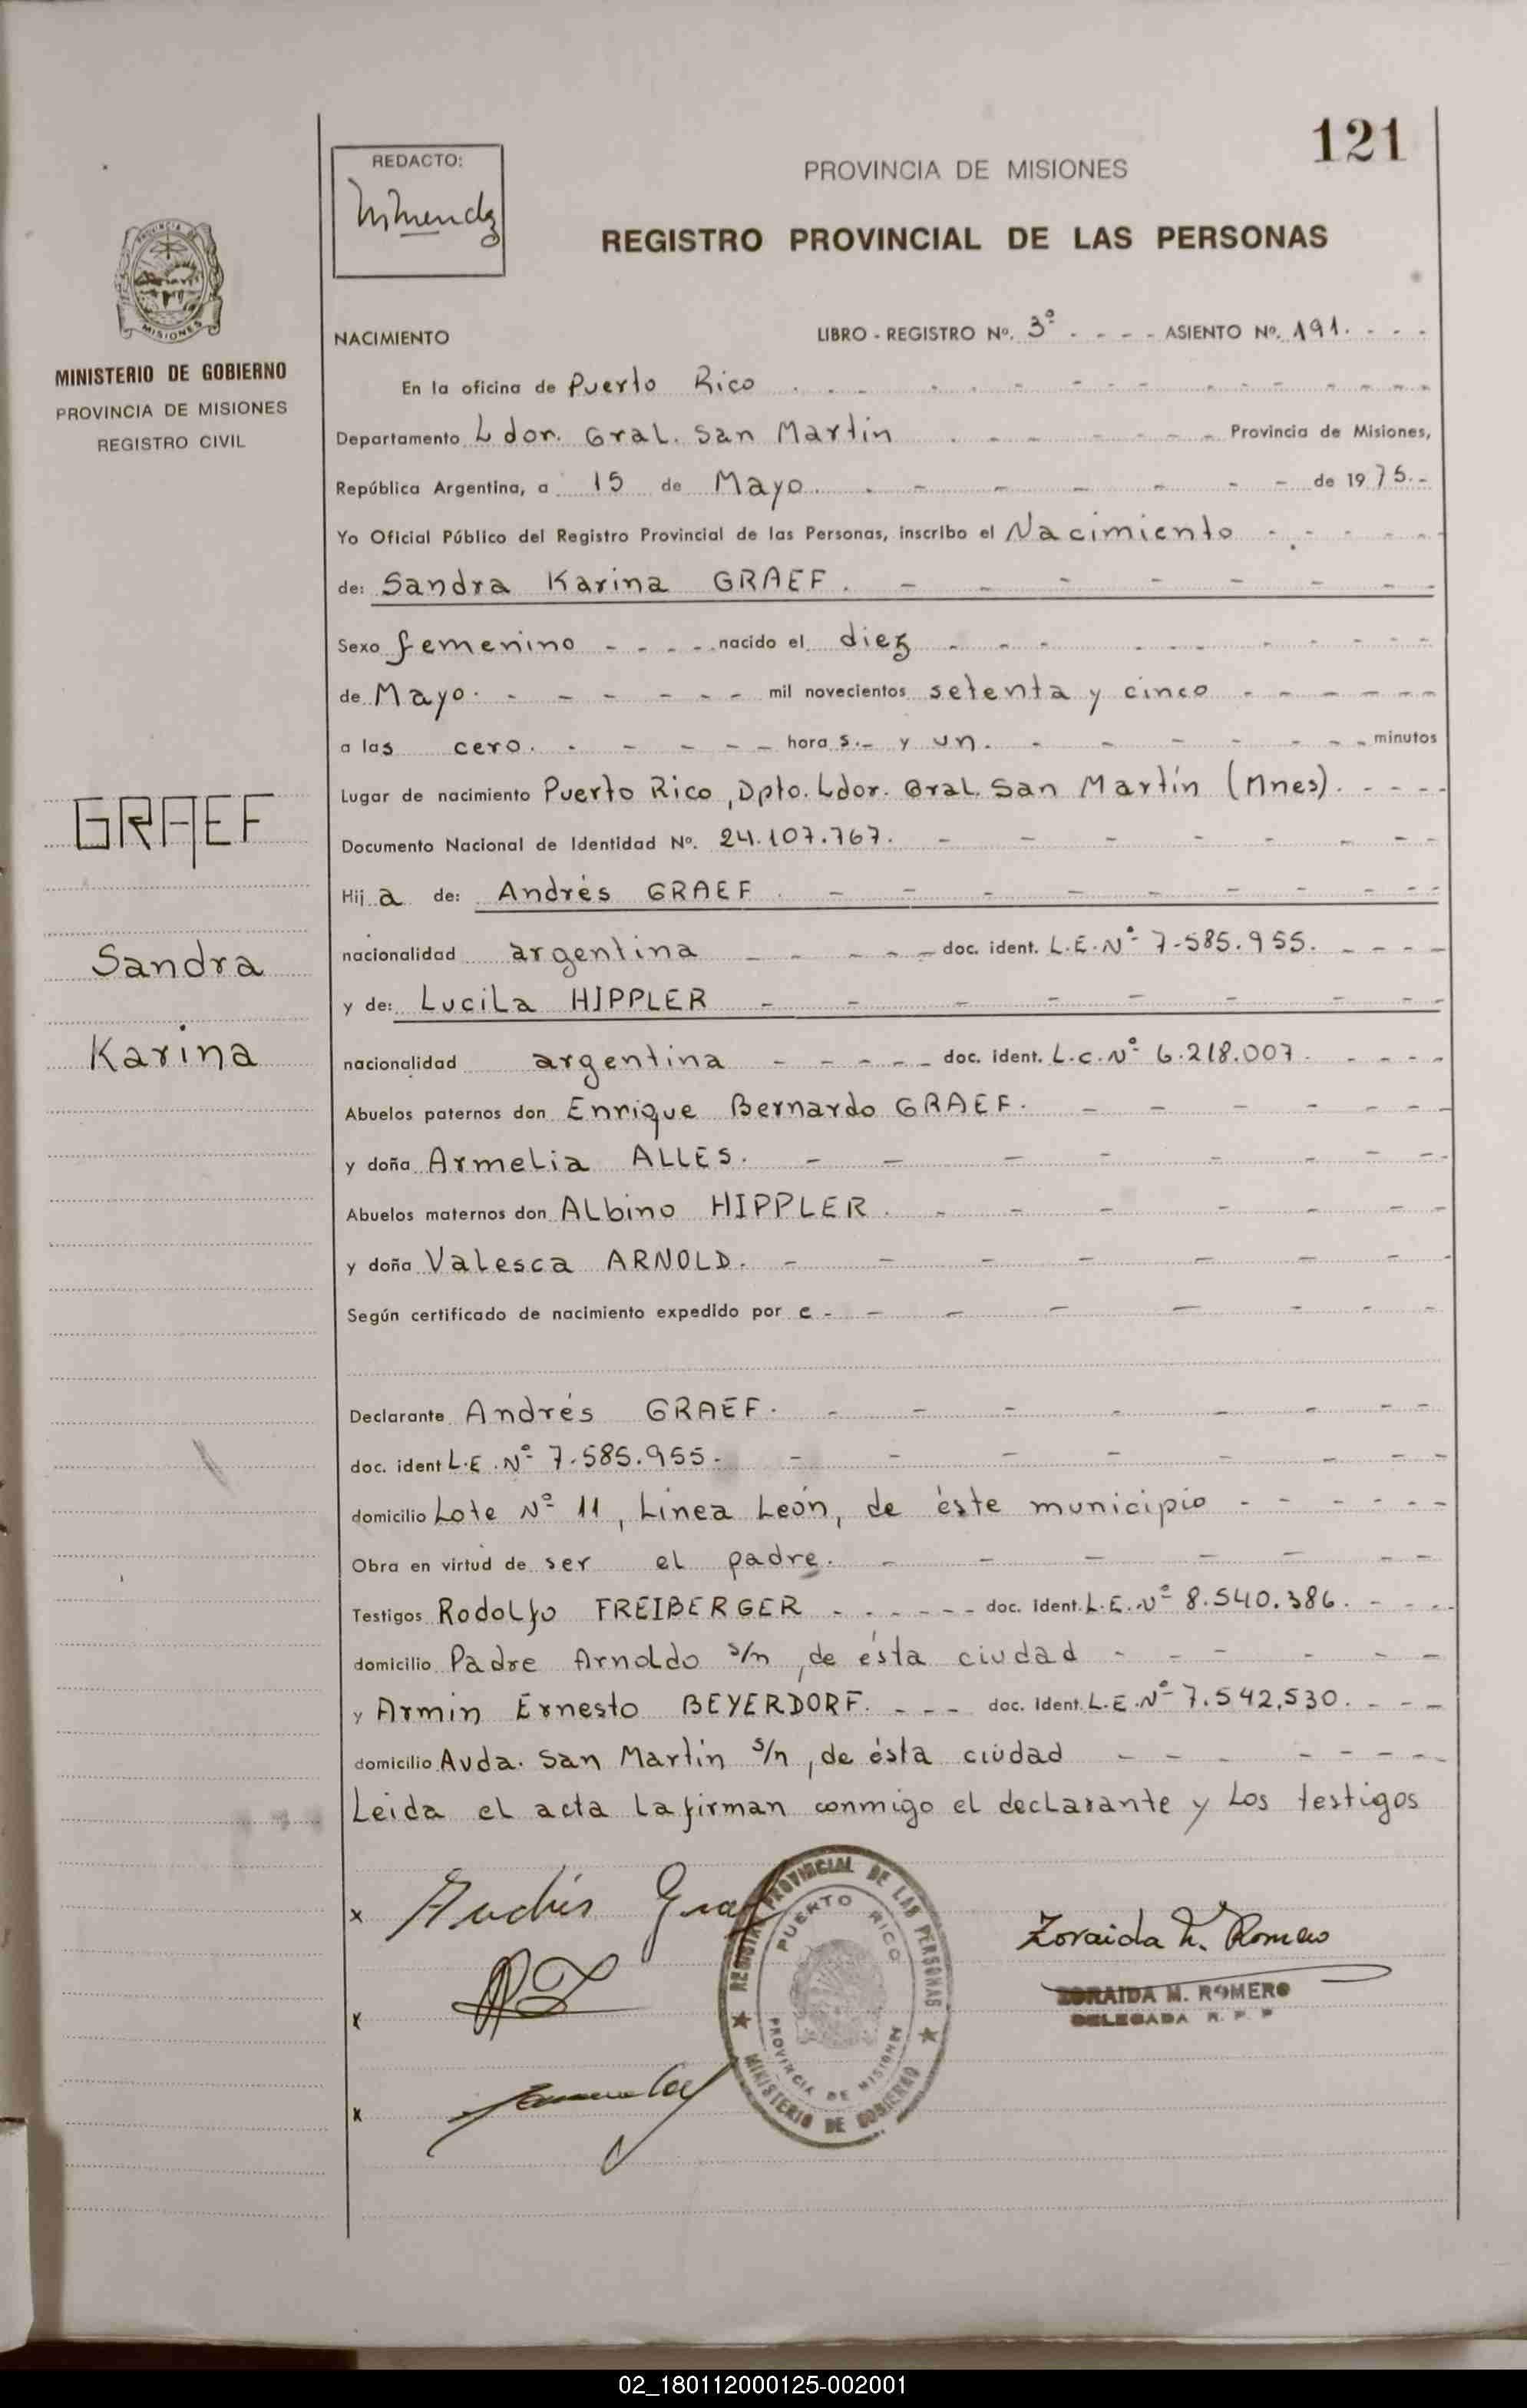 121
REDACTO:
PROVINCIA DE MISIONES
REGISTRO PROVINCIAL DE LAS PERSONAS
MISIONES
MINISTERIO DE GOBIERNO
PROVINCIA DE MISIONES
REGISTRO CIVIL
GRAEF
Sandra
Karina
NACIMIENTO LIBRO - REGISTRO Nº. 3º - - - - ASIENTO Nº. 191. - - -
En la oficina de Puerto Rico
Departamento Ldor. Gral. San Martin Provincia de Misiones,
República Argentina, a 15 de Mayo de 1975.-
Yo Oficial Público del Registro Provincial de las Personas, inscribo el Nacimiento
de: Sandra Karina GRAEF.
Sexo femenino nacido el diez
de Mayo. mil novecientos setenta y cinco
a las cero. hora s.- y un. minutos
Lugar de nacimiento Puerto Rico, Dpto. Ldor. Gral. San Martín (Mnes).
Documento Nacional de Identidad Nº. 24.107.767.
Hij a de: Andrés GRAEF
nacionalidad argentina doc. ident. L.E. Nº 7.585.955.
y de: Lucila HIPPLER
nacionalidad argentina doc. ident. L.C. Nº 6.218.007.
Abuelos paternos don Enrique Bernardo GRAEF.
y doña Armelia ALLES.
Abuelos maternos don Albino HIPPLER.
y doña Valesca ARNOLD.
Según certificado de nacimiento expedido por e
Declarante Andrés GRAEF.
doc. ident L.E. Nº 7.585.955.
domicilio Lote Nº 11, Linea León, de éste municipio
Obra en virtud de ser el padre.
Testigos Rodolfo FREIBERGER doc. Ident. L.E. Nº 8.540.386.
domicilio Padre Arnoldo s/n, de ésta ciudad
y Armin Ernesto BEYERDORF. doc. Ident. L.E. Nº 7.542.530.
domicilio Avda. San Martin s/n, de ésta ciudad
Leida el acta la firman conmigo el declarante y los testigos
x Andrés Graef
x
x
REGISTRO PROVINCIAL DE LAS PERSONAS
PUERTO RICO
PROVINCIA DE MISIONES
MINISTERIO DE GOBIERNO
Zoraida M. Romero
ZORAIDA M. ROMERO
DELEGADA R. P. P
02_180112000125-002001